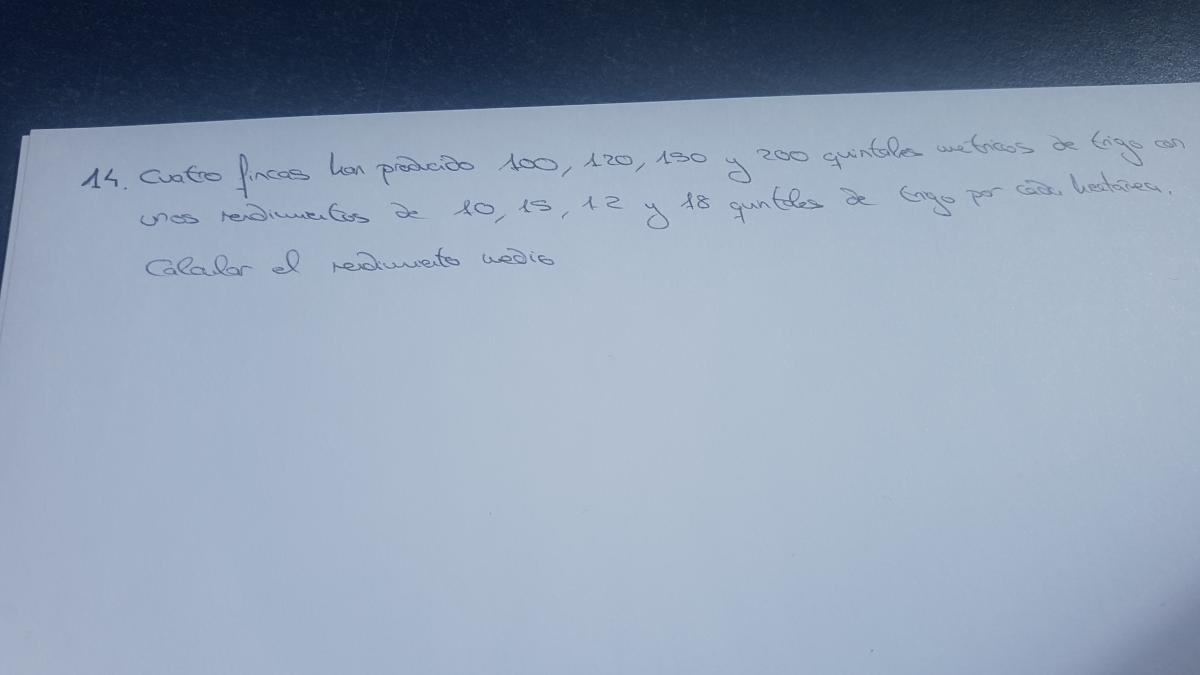 14. Cuatro fincas han producido 100, 120, 150 y 200 quintales metricos de trigo con
unos rendimientos de 10, 15, 12 y 18 quntales de trigo por cada hectárea.
Calcular el rendimiento medio